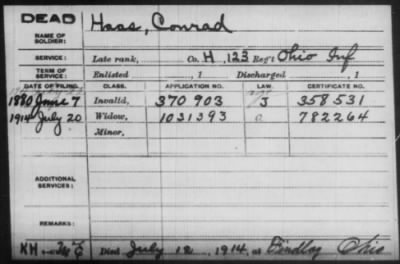 DEAD
NAME OF SOLDIER: Haas, Conrad
SERVICE: Late rank, Co. H, 123 Reg't Ohio Inf
TERM OF SERVICE: Enlisted , 1 Discharged , 1
DATE OF FILING. CLASS. APPLICATION NO. LAW. CERTIFICATE NO.
1880 June 7 Invalid, 370 903 J 358531
1914 July 20 Widow, 1031393 a 782264
Minor,
ADDITIONAL SERVICES:
REMARKS:
KH Died July 12, 1914, at Findlay Ohio